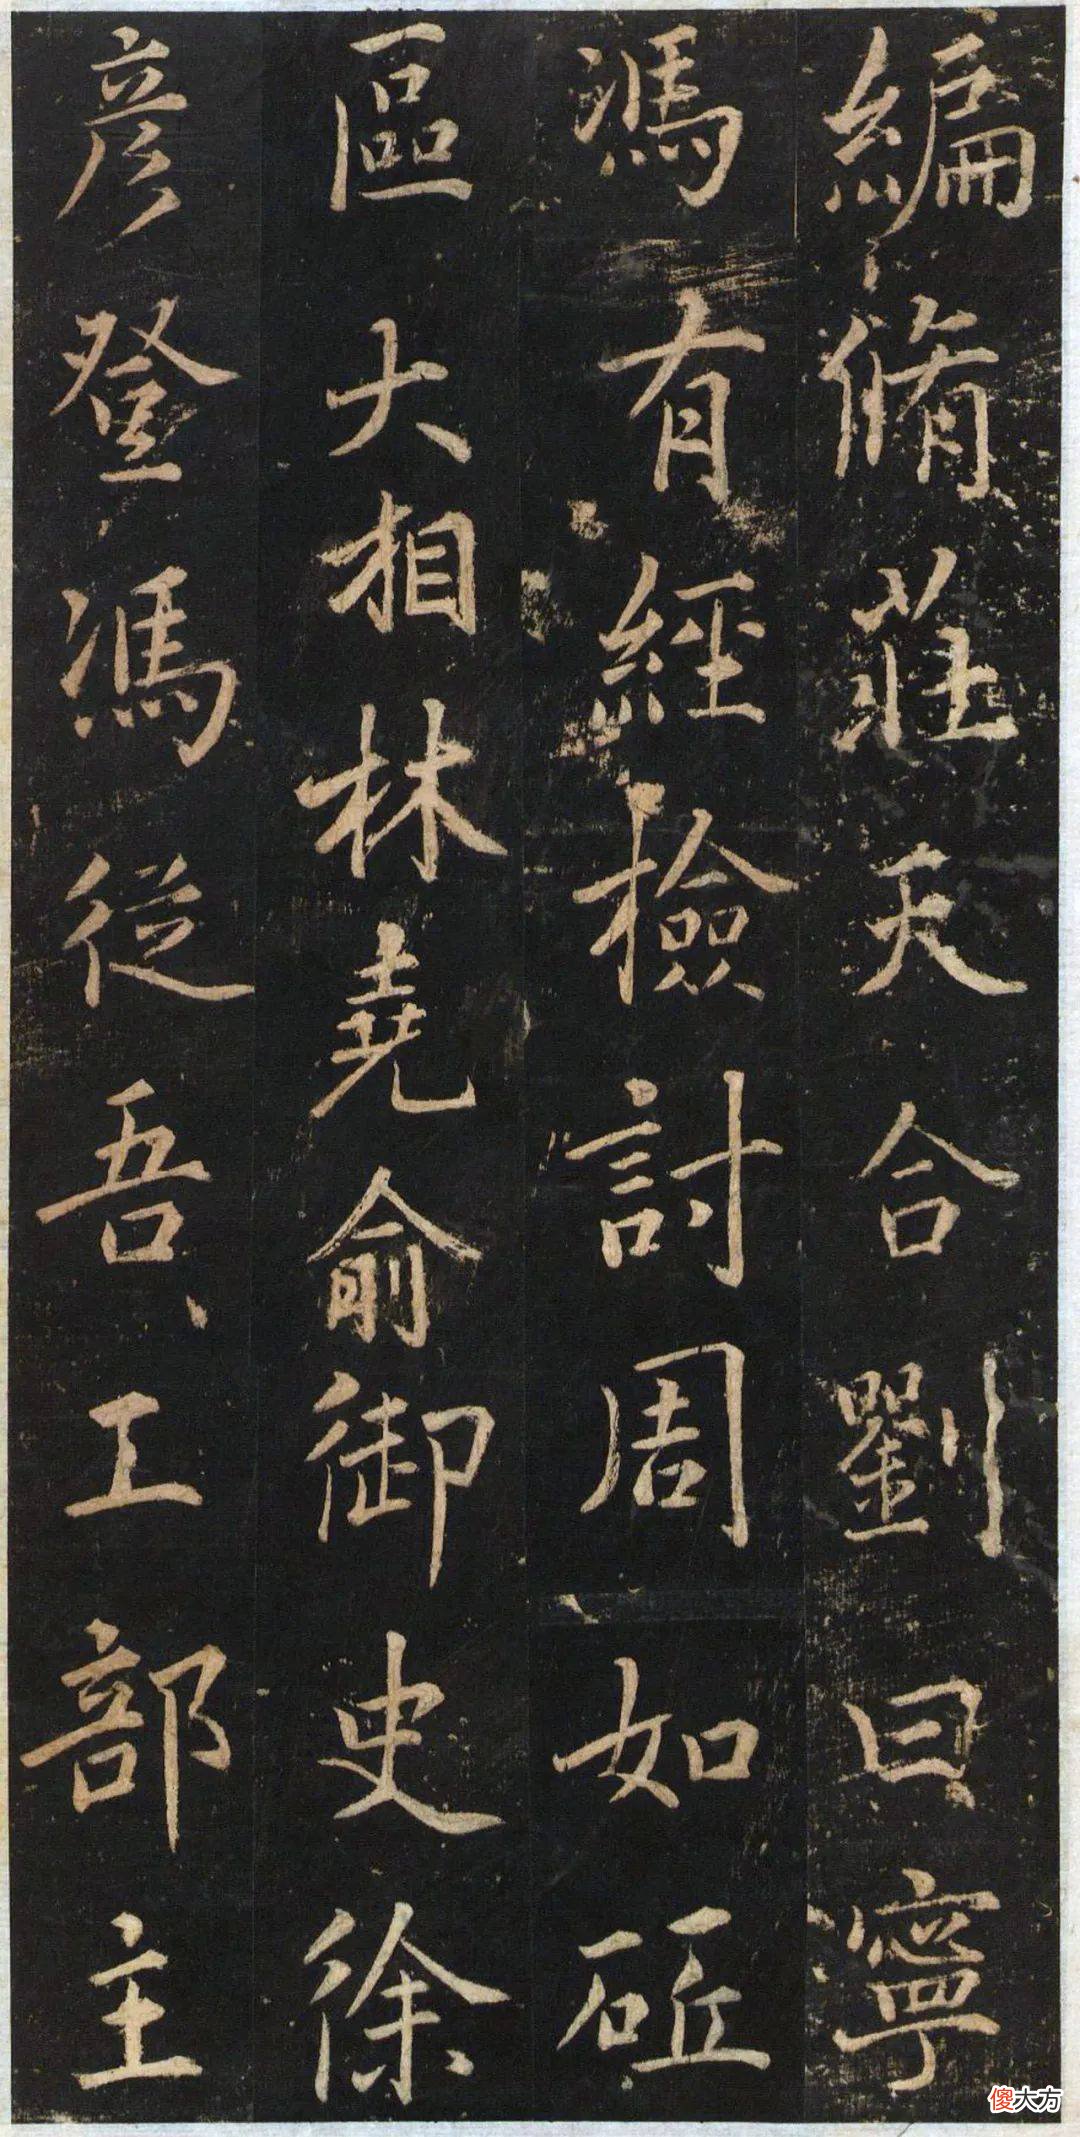 編脩莊天合劉曰寧
馮有經檢討周如砥
區大相林堯俞御史徐
彦登馮從吾工部主
傻大方